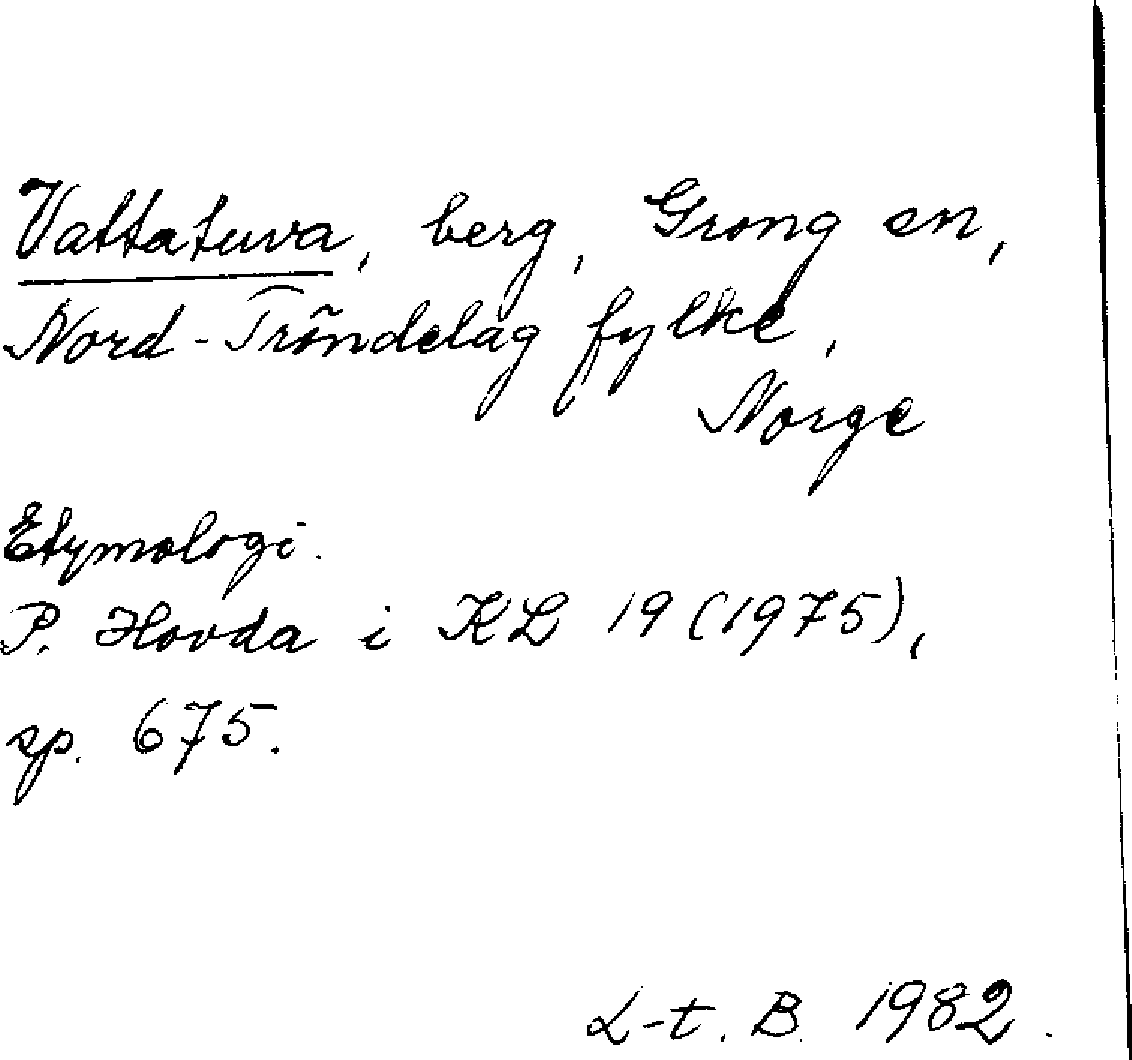 Vattatuva, berg, Grong sn,
Nord-Tröndelag fylke,
Norge
Etymologi.
P. Hovda i KL 19 (1975),
sp. 675.
L-t. B. 1982.